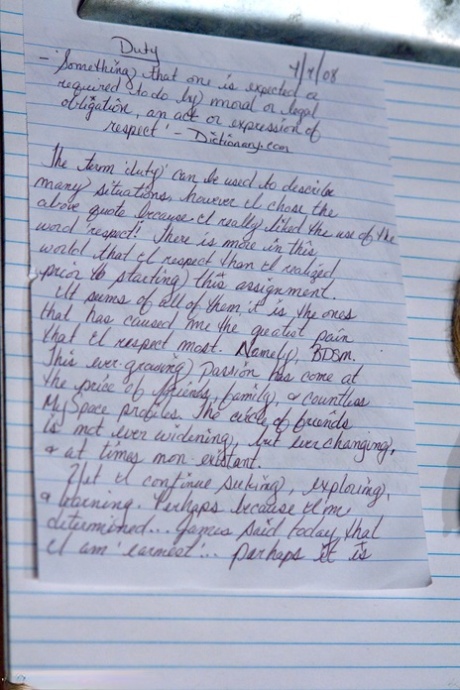 Duty 4/4/08
- 'Something that one is expected or
required to do by moral or legal
obligation, an act or expression of
respect' - Dictionary.com
The term 'duty' can be used to describe
many situations, however I chose the
above quote because I really liked the use of the
word 'respect'. There is more in this
world that I respect than I realized
prior to starting this assignment.
It sums of all of them, it is the ones
that has caused me the greatist pain
that I respect most. Namely, BDSM.
This ever-growing passion has come at
the price of friends, family, & countless
MySpace profiles. The circle of friends
is not ever widening, but ever changing,
& at times non-existant.
Yet I continue seeking, exploring,
& learning. Perhaps because I'm
determined... James said today that
I am 'earnest'... perhaps it is